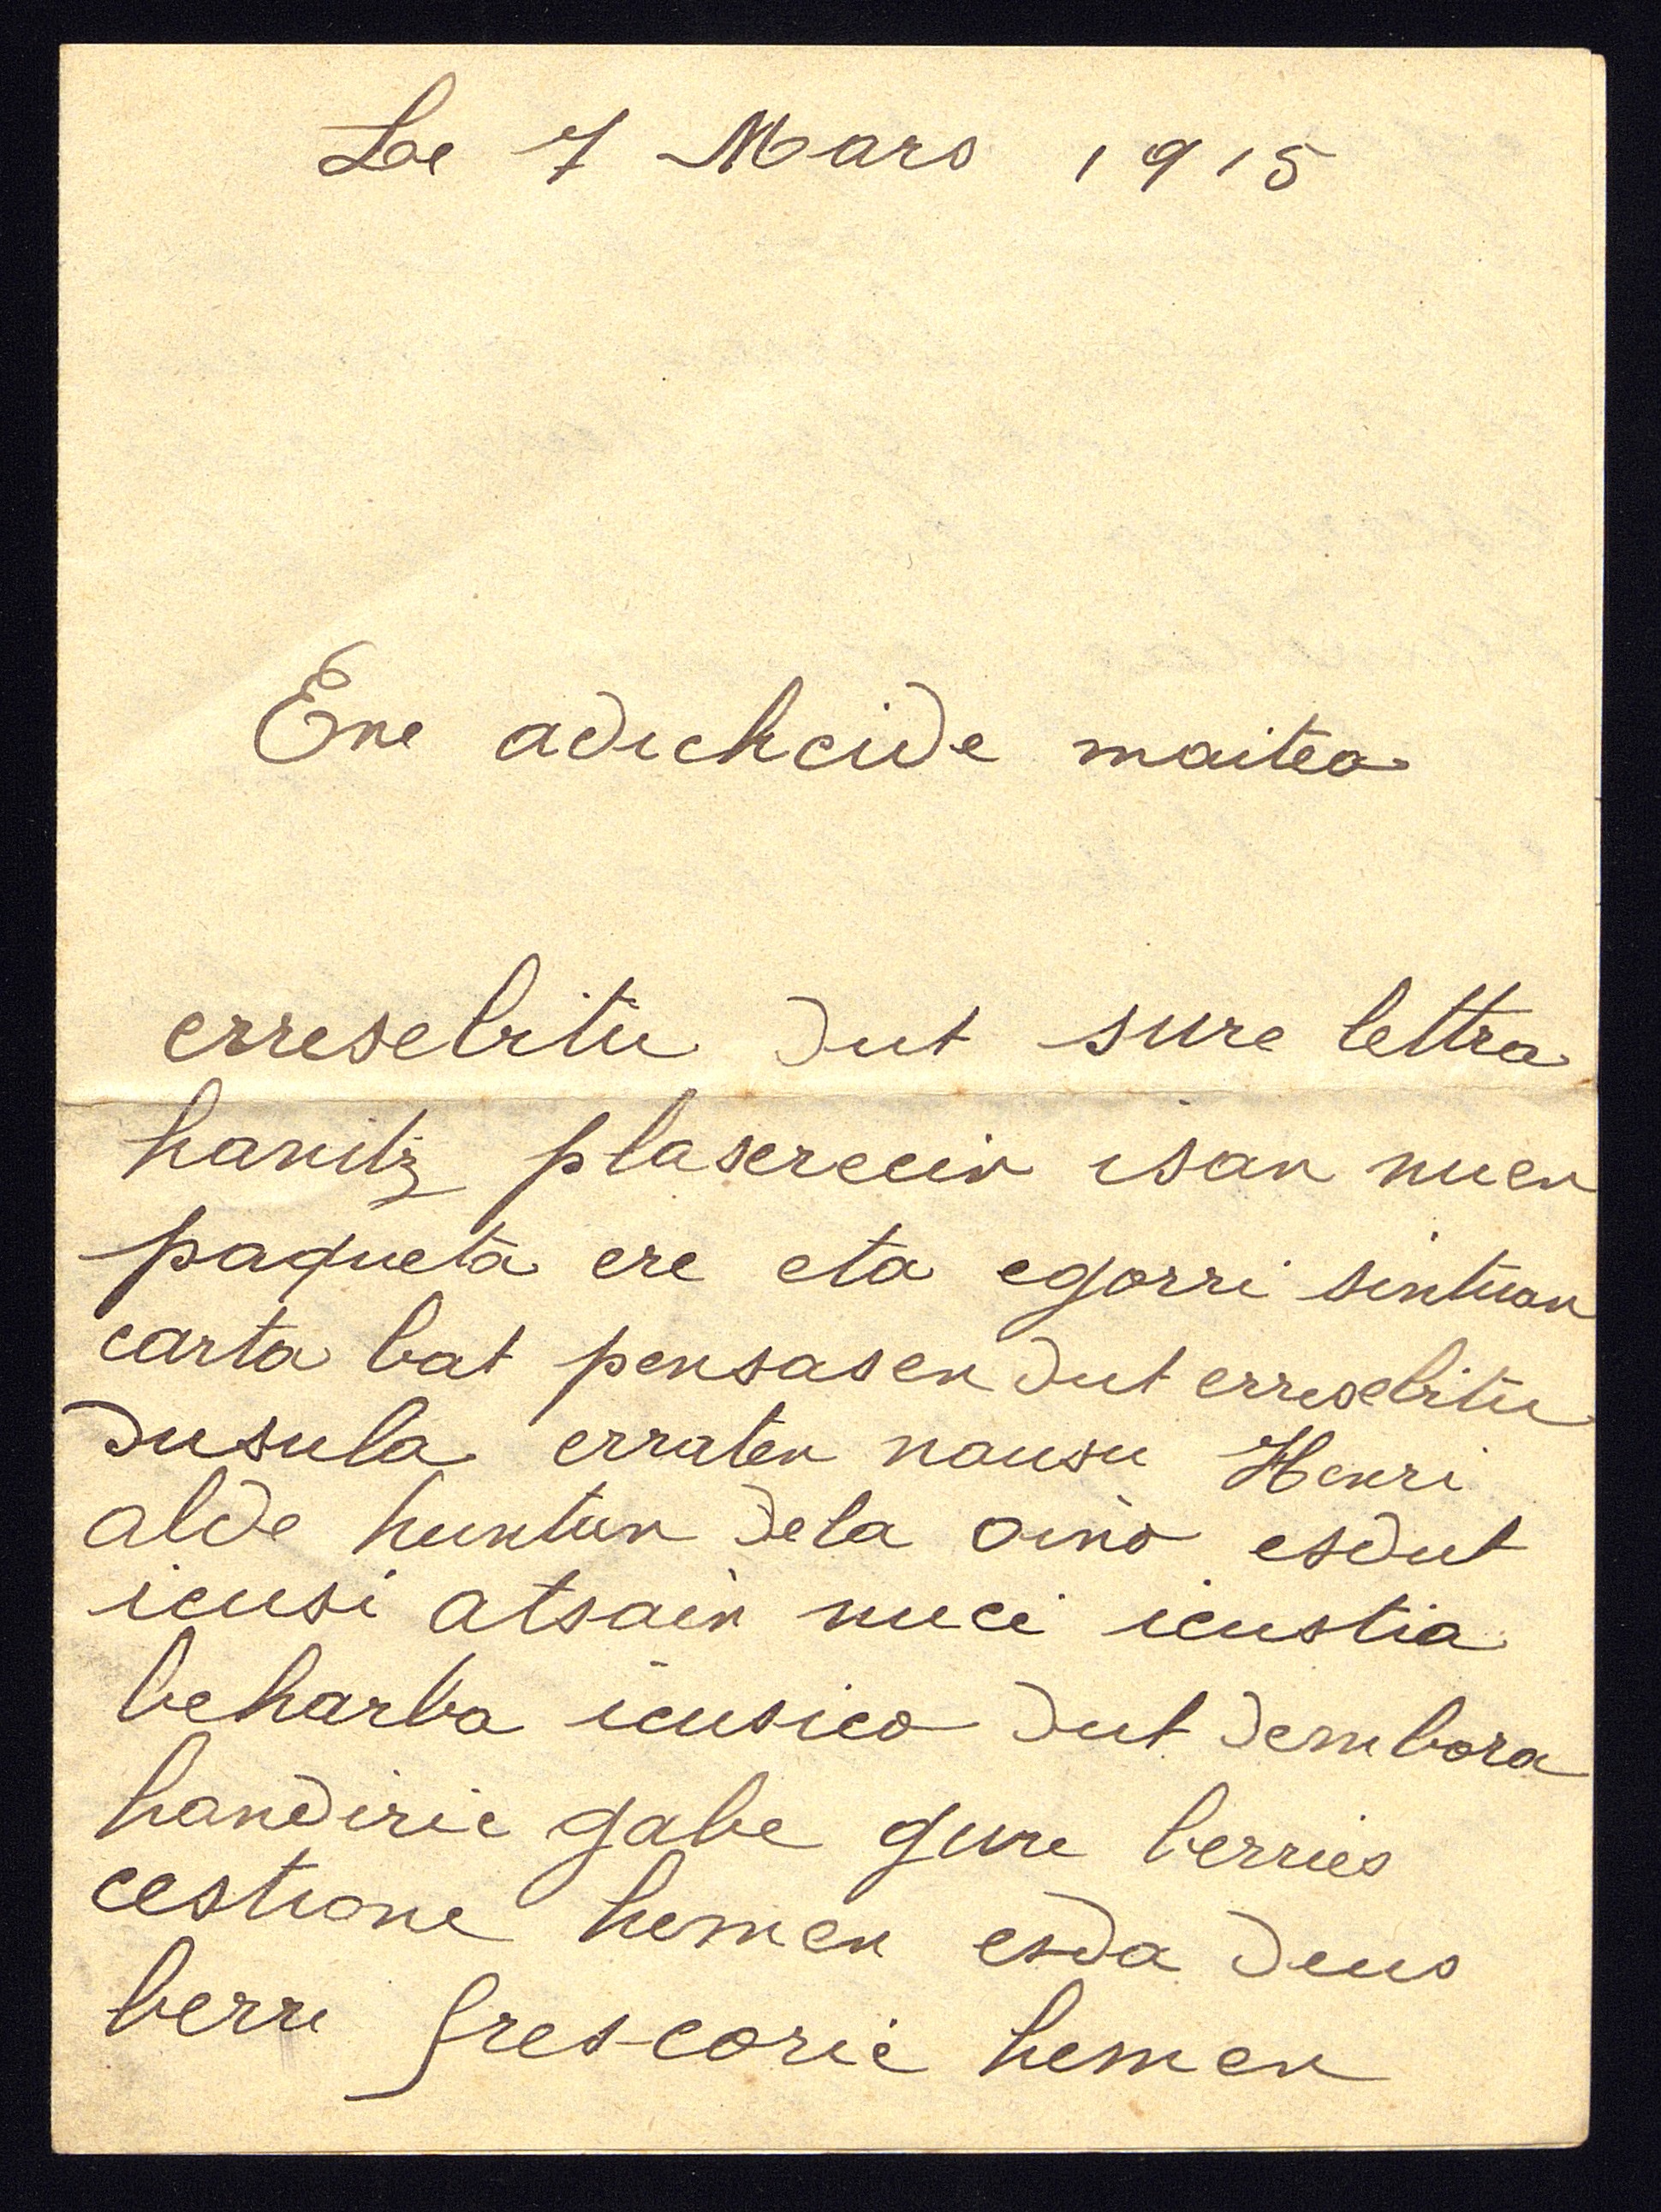 Le 7 Mars 1915
Ene adichcide maitea
erresebitu dut sure lettra
hanitz plaserecin isan nuen
paqueta ere eta egorri sintuan
carta bat pensasen dut erresebitu
dusula erraten nausu Henri
alde huntan dela oino esdut
icusi atsain nuci icustia
beharba icusico dut dembora
handiric gabe gure berries
cestione hemen esda deus
berri frescoric hemen